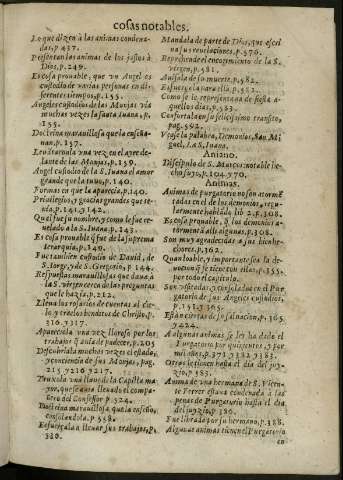 cosas notables.
Lo que dizen à las animas condena-
das, p.437.
Presentan las animas de los justos à
Dios, p.249.
Es cosa prouable, que vn Angel es
custodio de varias personas en di-
ferentes tiempos, p.135.
Angeles custodios de las Monjas viò
muchas vezes la santa Iuana, p.
135.
Doctrina marauillosa que la enseña-
uan, p.137.
Leuātauala vna vez en el ayre de-
lante de las Monjas, p.139.
Angel custodio de la S. Iuana el amor
grande que la tuuo, p.140.
Formas en que la aparecia, p.140.
Priuilegios, y gracias grandes que te-
nia, p.141, y 142.
Qual fue su nombre, y como le fue re-
uelado à la S. Iuana, p.143.
Es cosa prouable q̃ fue de la suprema
Ierarquia, p.140.
Fue tambien custodio de Dauid, de
S. Iorge, y de S. Gregorio, p.144.
Respuestas marauillosas que daua à
la S. virgen cerca de las preguntas
que le hazia, p.212.
Lleua los rosarios de cuentas al cie-
lo, y trae los benditos de Christo, p.
316, y 317.
Apareciola vna vez lloroso por los
trabajos q̃ auia de padecer, p.205
Descubriala muchas vezes el estado,
y conciencia de sus Monjas, pag.
215, y 216, y 217.
Truxola vna llaue de la Capilla ma-
yor, que se auia lleuado el compa-
ñero del Confessor, p.324.
Doctrina marauillosa, que la enseñò,
consolandola, p.358.
Esfuerçala à lleuar sus trabajos, p.
380.
Mandala de parte de Dios, que escri-
ua sus reuelaciones, p.576.
Reprehende el encogimiento de la S.
virgen, p.581.
Auisala de su muerte, p.582.
Esfuerçala para ella, p.582.
Como se le representaua de fiesta a-
quellos dias, p.583.
Confortala en su felicissimo transito,
pag.592.
Vease la palabra, Demonios, San Mi-
guel, La S. Iuana.
Aniano.
Discipulo de S. Marcos: notable he-
cho suyo, p.104, y 70.
Animas.
Animas de purgatorio no son atorme-
tadas en el de los demonios, regu-
larmente hablādo lib 2. p.308.
Es cosa prouable, q̃ los demonios a-
tormentā alli algunas, p.308.
Son muy agradecidas à sus bienhe-
chores, p.362.
Quan loable, y importante sea la de-
uocion q̃ se tiene con ellas, p.355.
por todo el capitulo.
Son visitadas, y consoladas en el Pur-
gatorio de sus Angeles custodios,
p.151, y 365.
Està ciertas de su saluacion, p.365.
y 424.
A algunas animas se les ha dado el
Purgatorio por quinientos, y por
mil años, p.371, y 382, y 383.
Otras le tienen hasta el dia del juy-
zio, p.383.
Anima de vna hermana de S. Vicen-
te Ferrer estaua condenada à las
penas de Purgatorio hasta el dia
del juyzio, p.386.
Fue librada por su hermano, p.388.
Algunas animas tienen el Purgatorio
en